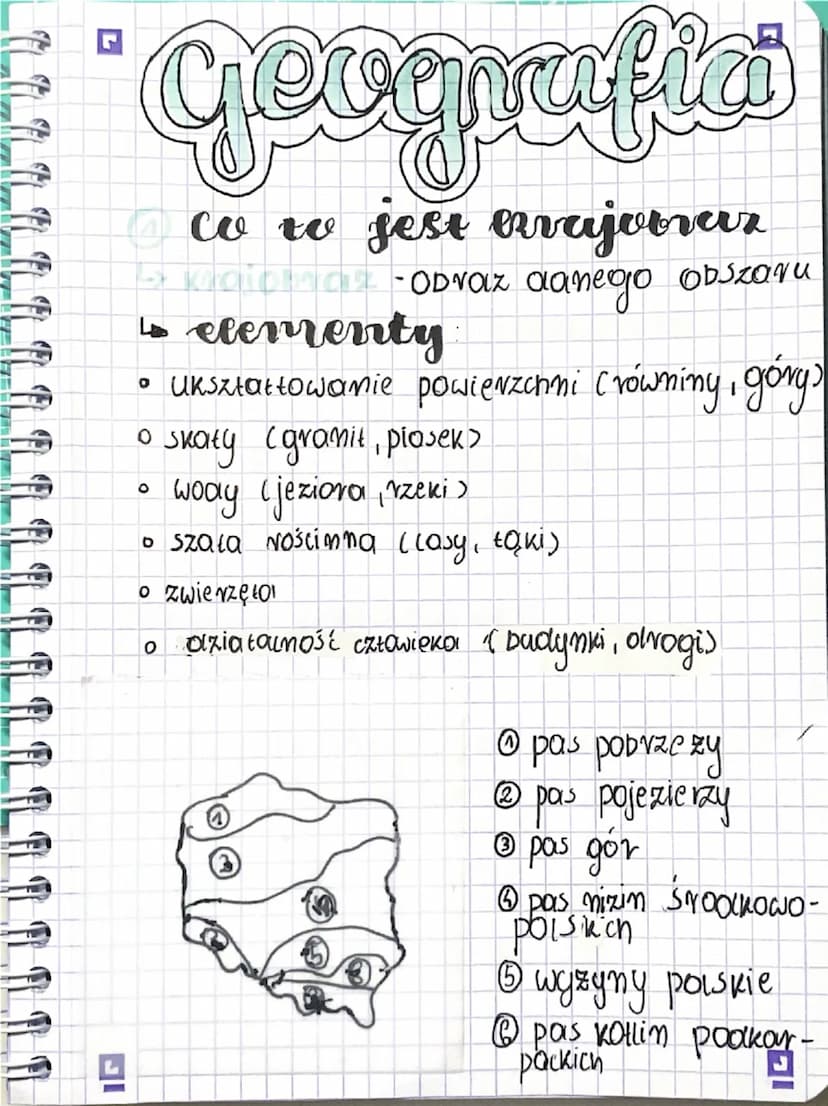 Geografia
① co to jest krajobraz
↳ krajobraz - obraz danego obszaru
↳ elementy:
• ukształtowanie powierzchni (równiny, góry)
• skały (granit, piasek)
• wody (jeziora, rzeki)
• szata roślinna (lasy, łąki)
• zwierzęta
• działalność człowieka (budynki, drogi)
① pas pobrzeży
② pas pojezierzy
③ pas gór
④ pas nizin środkowo-
polskich
⑤ wyżyny polskie
⑥ pas kotlin podkar-
packich
①
⑤